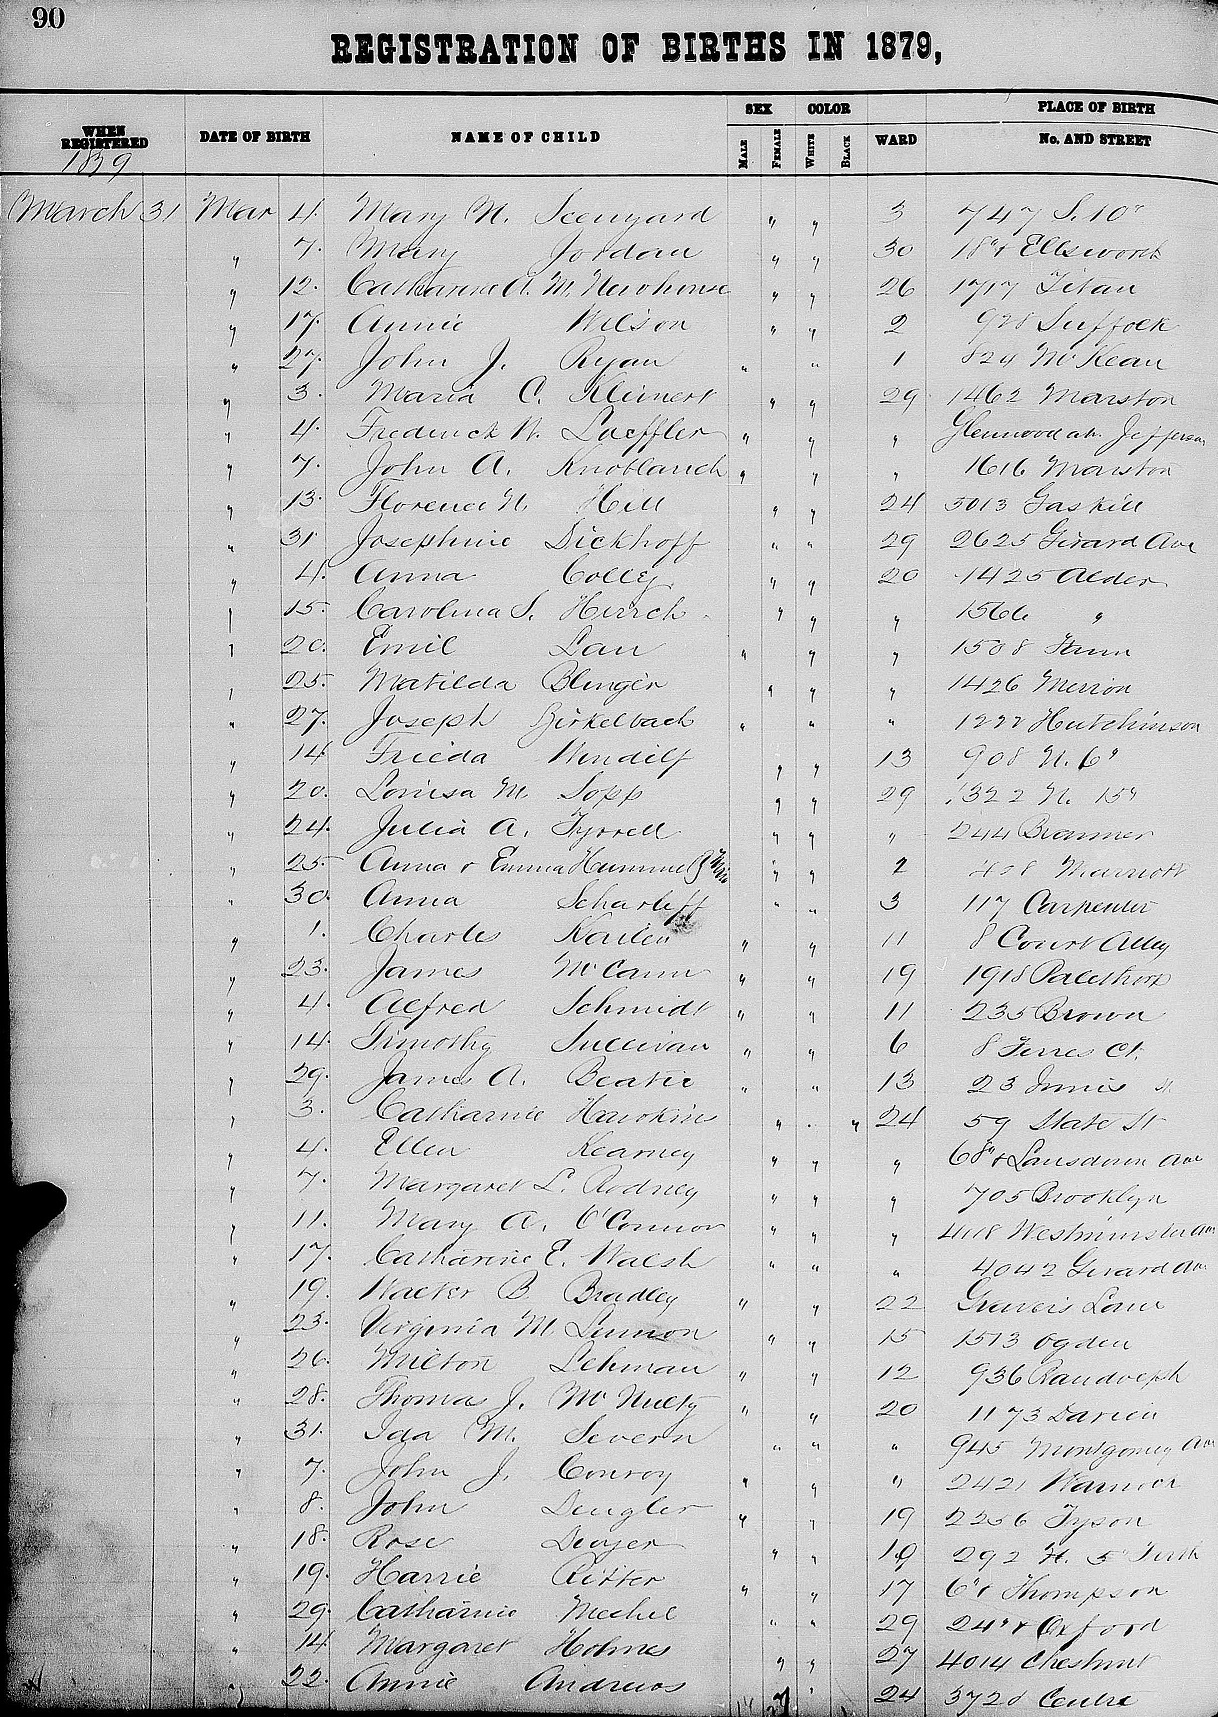 90
REGISTRATION OF BIRTHS IN 1879,
WHEN REGISTERED DATE OF BIRTH NAME OF CHILD SEX MALE FEMALE COLOR WHITE BLACK WARD PLACE OF BIRTH No. AND STREET
1879
March 31 Mar 4. Mary N. " " 3 747 S. 10"
" 7. Mary Jordan " " 30 18" & Ellsworth
" 12. Catharine A. M. Newhouse " " 26 1717 Titan
" 17. Annie Wilson " " 2 928 Suffolk
" 27. John J. Ryan " " 1 824 McKean
" 3. Maria C. Kleinert " " 29 1462 Marston
" 4. Frederick W. Loeffler " " " Glenwood av. Jefferson
" 7. John A. Knoblauch " " " 1616 Marston
" 13. Florence N. Hill " " 24 5013 Gaskill
" 31 Josephine Dickhoff " " 29 2625 Girard Ave
" 4. Anna Colley " " 20 1425 Alder
" 15. Carolina S. Hirsch " " " 1566 "
" 20. Emil Lau " " " 1508
" 25. Matilda Blinger " " " 1426 Merion
" 27. Joseph Birkelbach " " " 1222 Hutchinson
" 14 Frieda " " 13 908 N. 6"
" 20. Louisa M. Sopp " " 29 1322 N. 15"
" 24. Julia A. Tyrrell " " " 244
" 25. Anna & Emma Hummel " " 2 408 Marriott
" 30. Anna Scharleff " " 3 117 Carpenter
" 1. Charles " " 11 8 Court Alley
" 23. James McCann " " 19 1918 Palethorp
" 4. Alfred Schmidt " " 11 235 Brown
" 14. Timothy Sullivan " " 6 8 Ct.
" 29. James A. Beatie " " 13 23 St
" 3. Catharine Hawkins " " 24 59 State St
" 4. Ellen Kearney " " " 68" & Lansdown Ave
" 7. Margaret L. Rodney " " " 705 Brooklyn
" 11. Mary A. O'Connor " " " Westminster Ave
" 17. Catharine E. Walsh " " " 4042 Girard Ave
" 19. Walter B. Bradley " " 22 Lane
" 23. Virginia M. Lennon " " 15 1513 Ogden
" 26. Milton Lehman " " 12 936 Randolph
" 28. Thomas J. McNulty " " 20 1173 Darien
" 31. Ida M. Severn " " " 945 Montgomery Ave
" 7. John J. Conroy " " " 2421 Warnock
" 8. John Dengler " " 19 2256 Tyson
" 18. Rose Dwyer " " 19
" 19. Harrie Ritter " " 17 6" & Thompson
" 29. Catharine Mechel " " 29 24" & Oxford
" 14. Margaret Holmes " " 27 4014 Chestnut
" 22. Annie Andrews " 24 3728 Centre